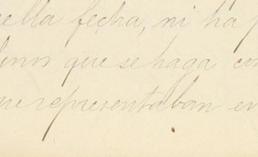 ella fecha, ni ha
que se haga con
representaban en